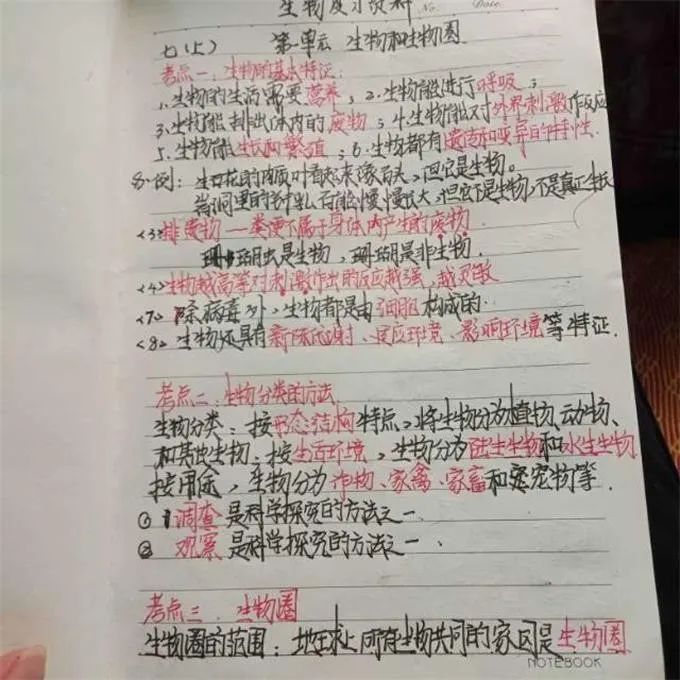 生物复习资料 No. Date.
七(上) 第一单元 生物和生物圈
考点一、生物的基本特征:
1、生物的生活需要营养; 2、生物能进行呼吸;
3、生物能排出体内的废物; 4、生物能对外界刺激作反应
5、生物能生长和繁殖; 6、生物都有遗传和变异的特性.
例: 生石花的肉质叶看起来像石头,但它是生物。
岩洞里的钟乳石能慢慢长大,但它不是生物,不是真正生长
<3>排遗物—粪便不属于身体内产生的废物.
珊瑚虫是生物,珊瑚是非生物.
<4>生物越高等对刺激作出的反应越强,越灵敏
<7> 除病毒外,生物都是由细胞构成的.
<8> 生物还具有新陈代谢、适应环境、影响环境等特征.
考点二、生物分类的方法
生物分类: 按形态结构特点,将生物分为植物、动物、
和其他生物; 按生活环境,生物分为陆生生物和水生生物
按用途,生物分为作物、家禽、家畜和宠物等.
① 调查是科学探究的方法之一.
② 观察是科学探究的方法之一.
考点三、生物圈
生物圈的范围: 地球上所有生物共同的家园是生物圈
NOTEBOOK